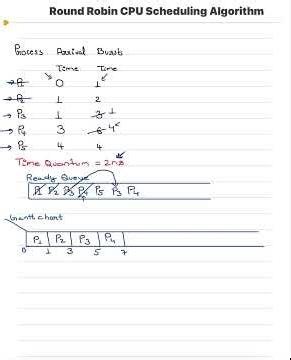 Round Robin CPU Scheduling Algorithm
Process Arrival Burst
Time Time
→ P1 0 1
→ P2 1 2
→ P3 1 3 1
→ P4 3 6 4
→ P5 4 4
Time Quantum = 2ns
Ready Queue
P1 P2 P3 P4 P5 P3 P4
Gantt chart
P1 P2 P3 P4
0 1 3 5 7